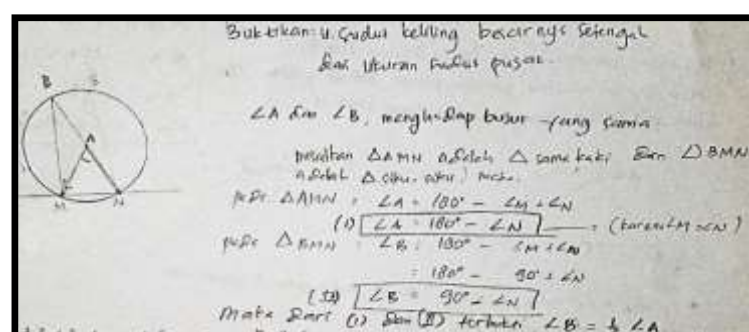 Buktikan: u. Sudut keliling besarnya setengah
dari ukuran sudut pusat.
B
A
M
N
∠A dan ∠B, menghadap busur yang sama
misalkan △AMN adalah △ sama kaki dan △BMN
adalah △ siku-siku, maka.
pada △AMN = ∠A = 180° - ∠M + ∠N
(1) ∠A = 180° - ∠N (karena ∠M = ∠N)
pada △BMN = ∠B = 180° - ∠M + ∠N
= 180° - 90° + ∠N
(II) ∠B = 90° - ∠N
Maka dari (1) dan (II) terbukti ∠B = ½ ∠A